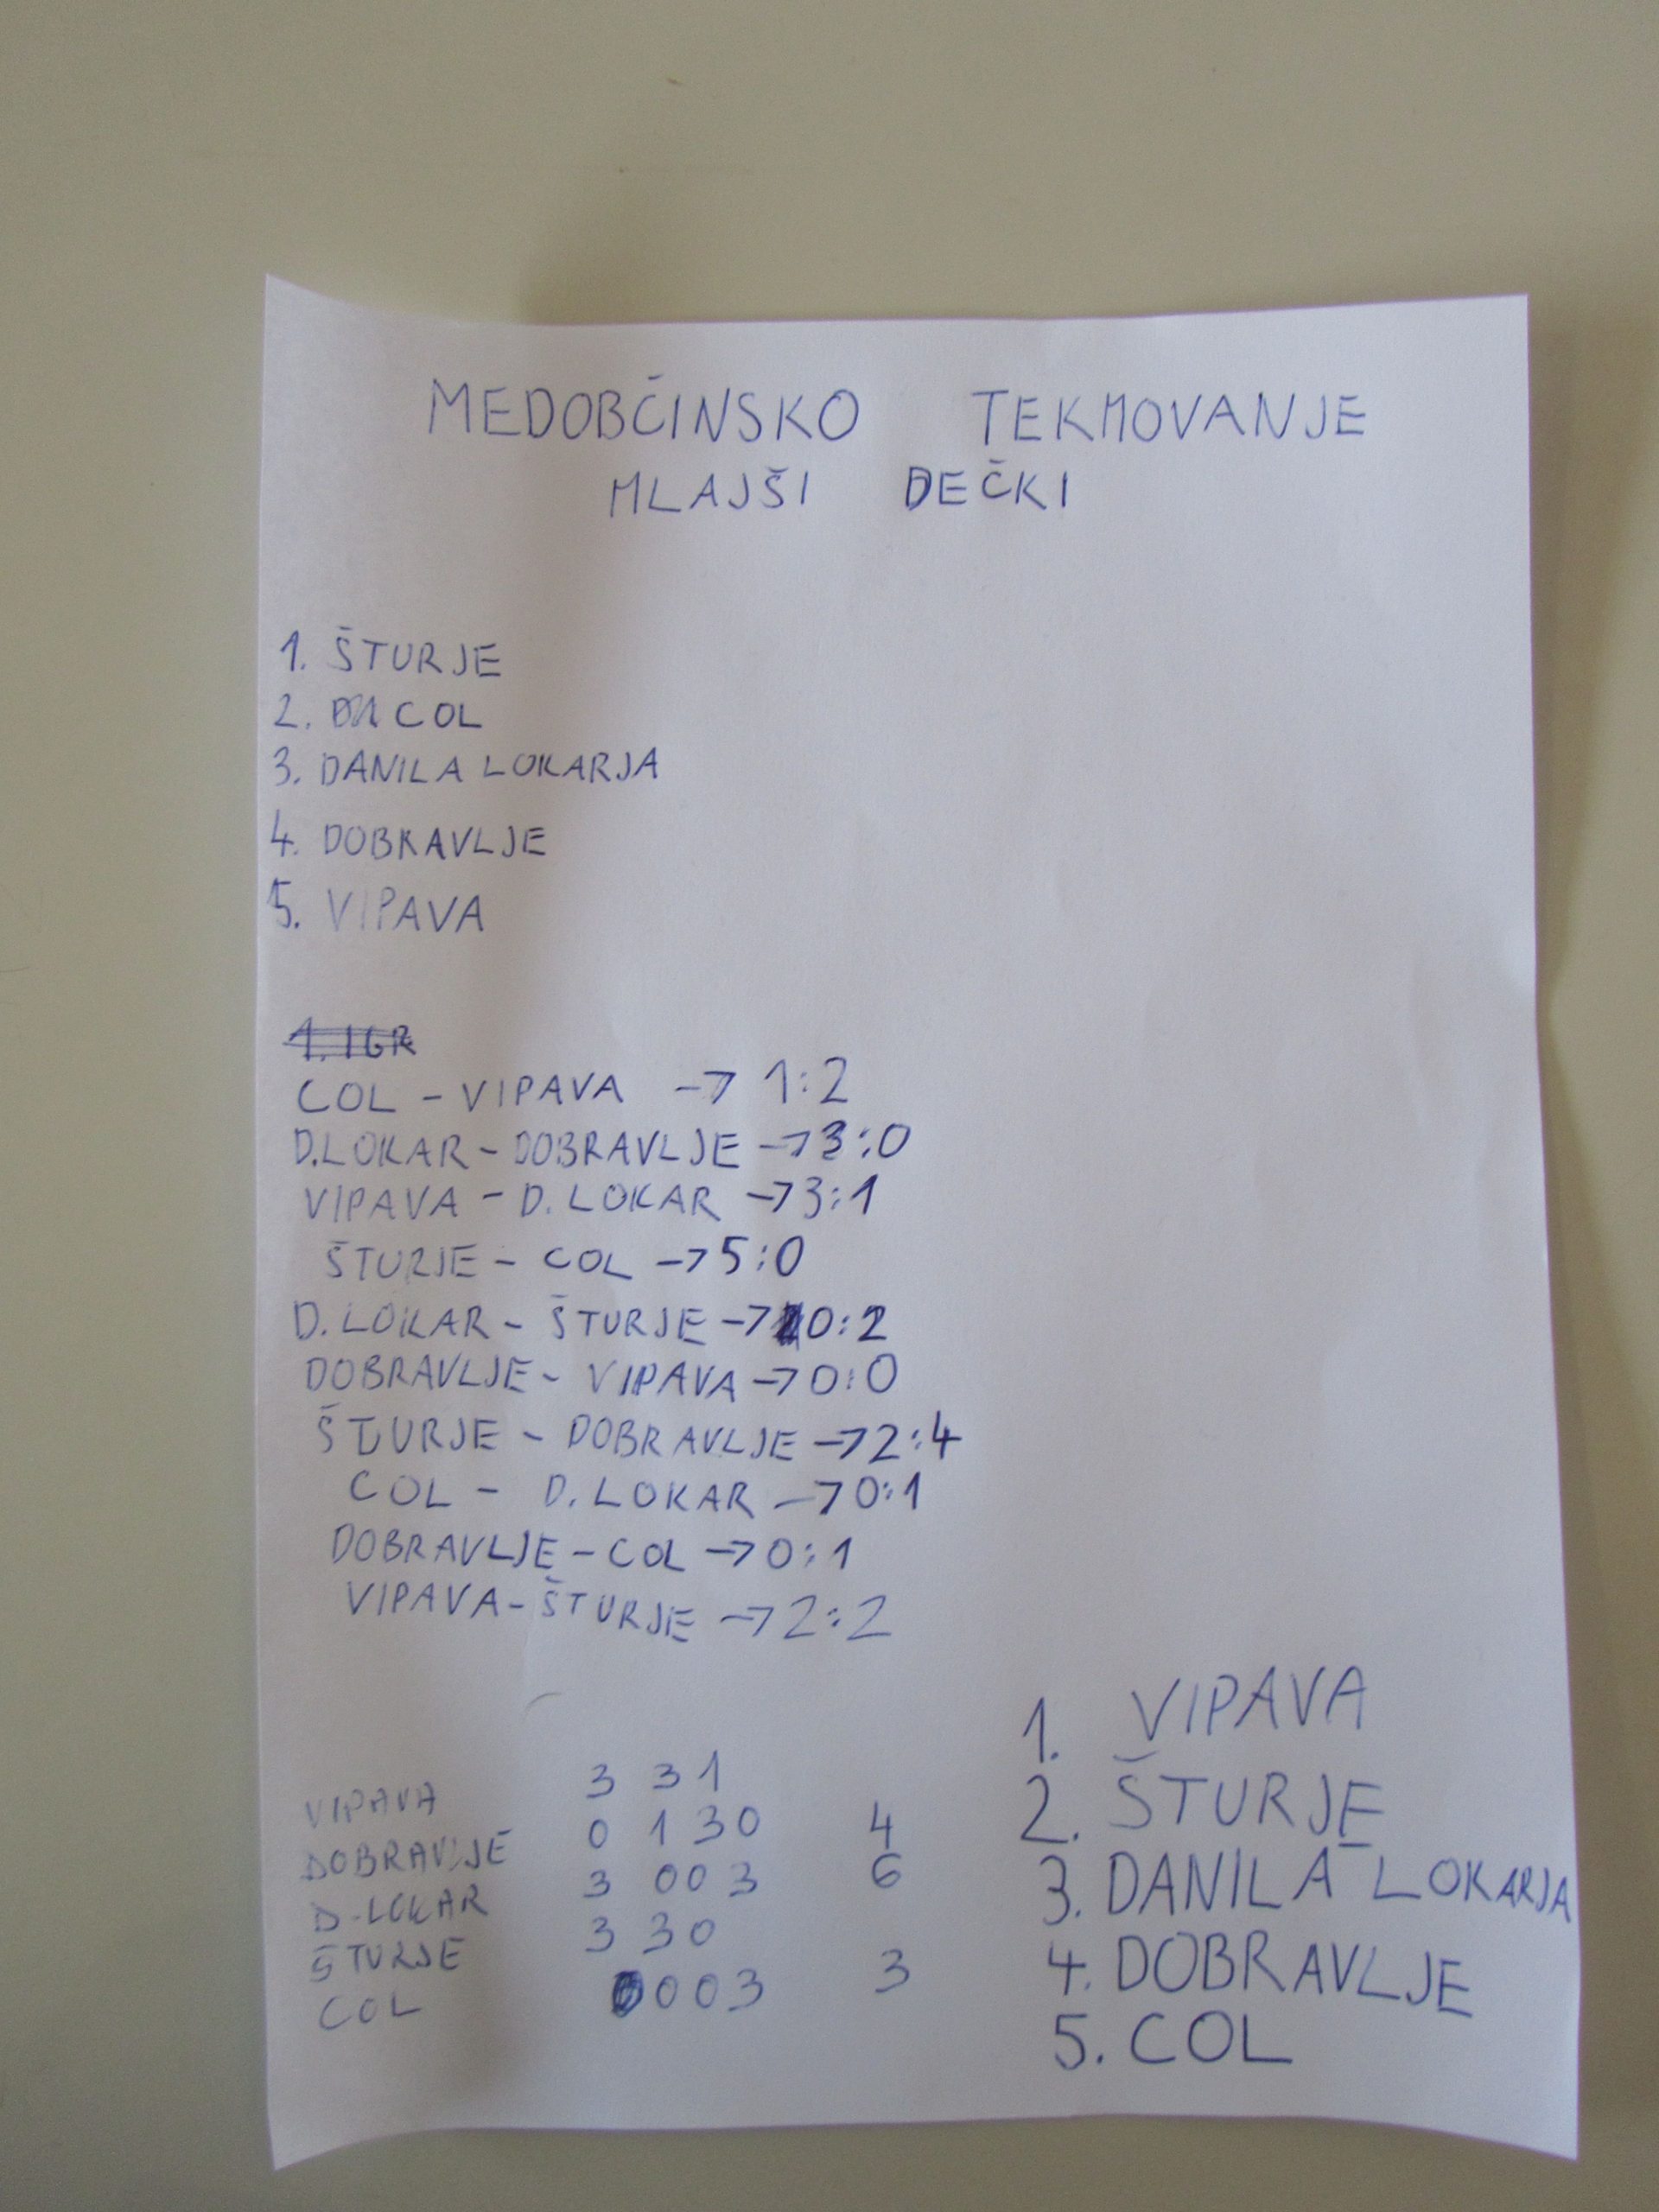 MEDOBČINSKO TEKMOVANJE
MLAJŠI DEČKI
1. ŠTURJE
2. COL
3. DANILA LOKARJA
4. DOBRAVLJE
5. VIPAVA
1. IGR
COL - VIPAVA -> 1:2
D.LOKAR - DOBRAVLJE -> 3:0
VIPAVA - D. LOKAR -> 3:1
ŠTURJE - COL -> 5:0
D. LOKAR - ŠTURJE -> 0:2
DOBRAVLJE - VIPAVA -> 0:0
ŠTURJE - DOBRAVLJE -> 2:4
COL - D. LOKAR -> 0:1
DOBRAVLJE - COL -> 0:1
VIPAVA - ŠTURJE -> 2:2
VIPAVA 3 3 1
DOBRAVLJE 0 1 3 0 4
D. LOKAR 3 0 0 3 6
ŠTURJE 3 3 0
COL 0 0 0 3 3
1. VIPAVA
2. ŠTURJE
3. DANILA LOKARJA
4. DOBRAVLJE
5. COL